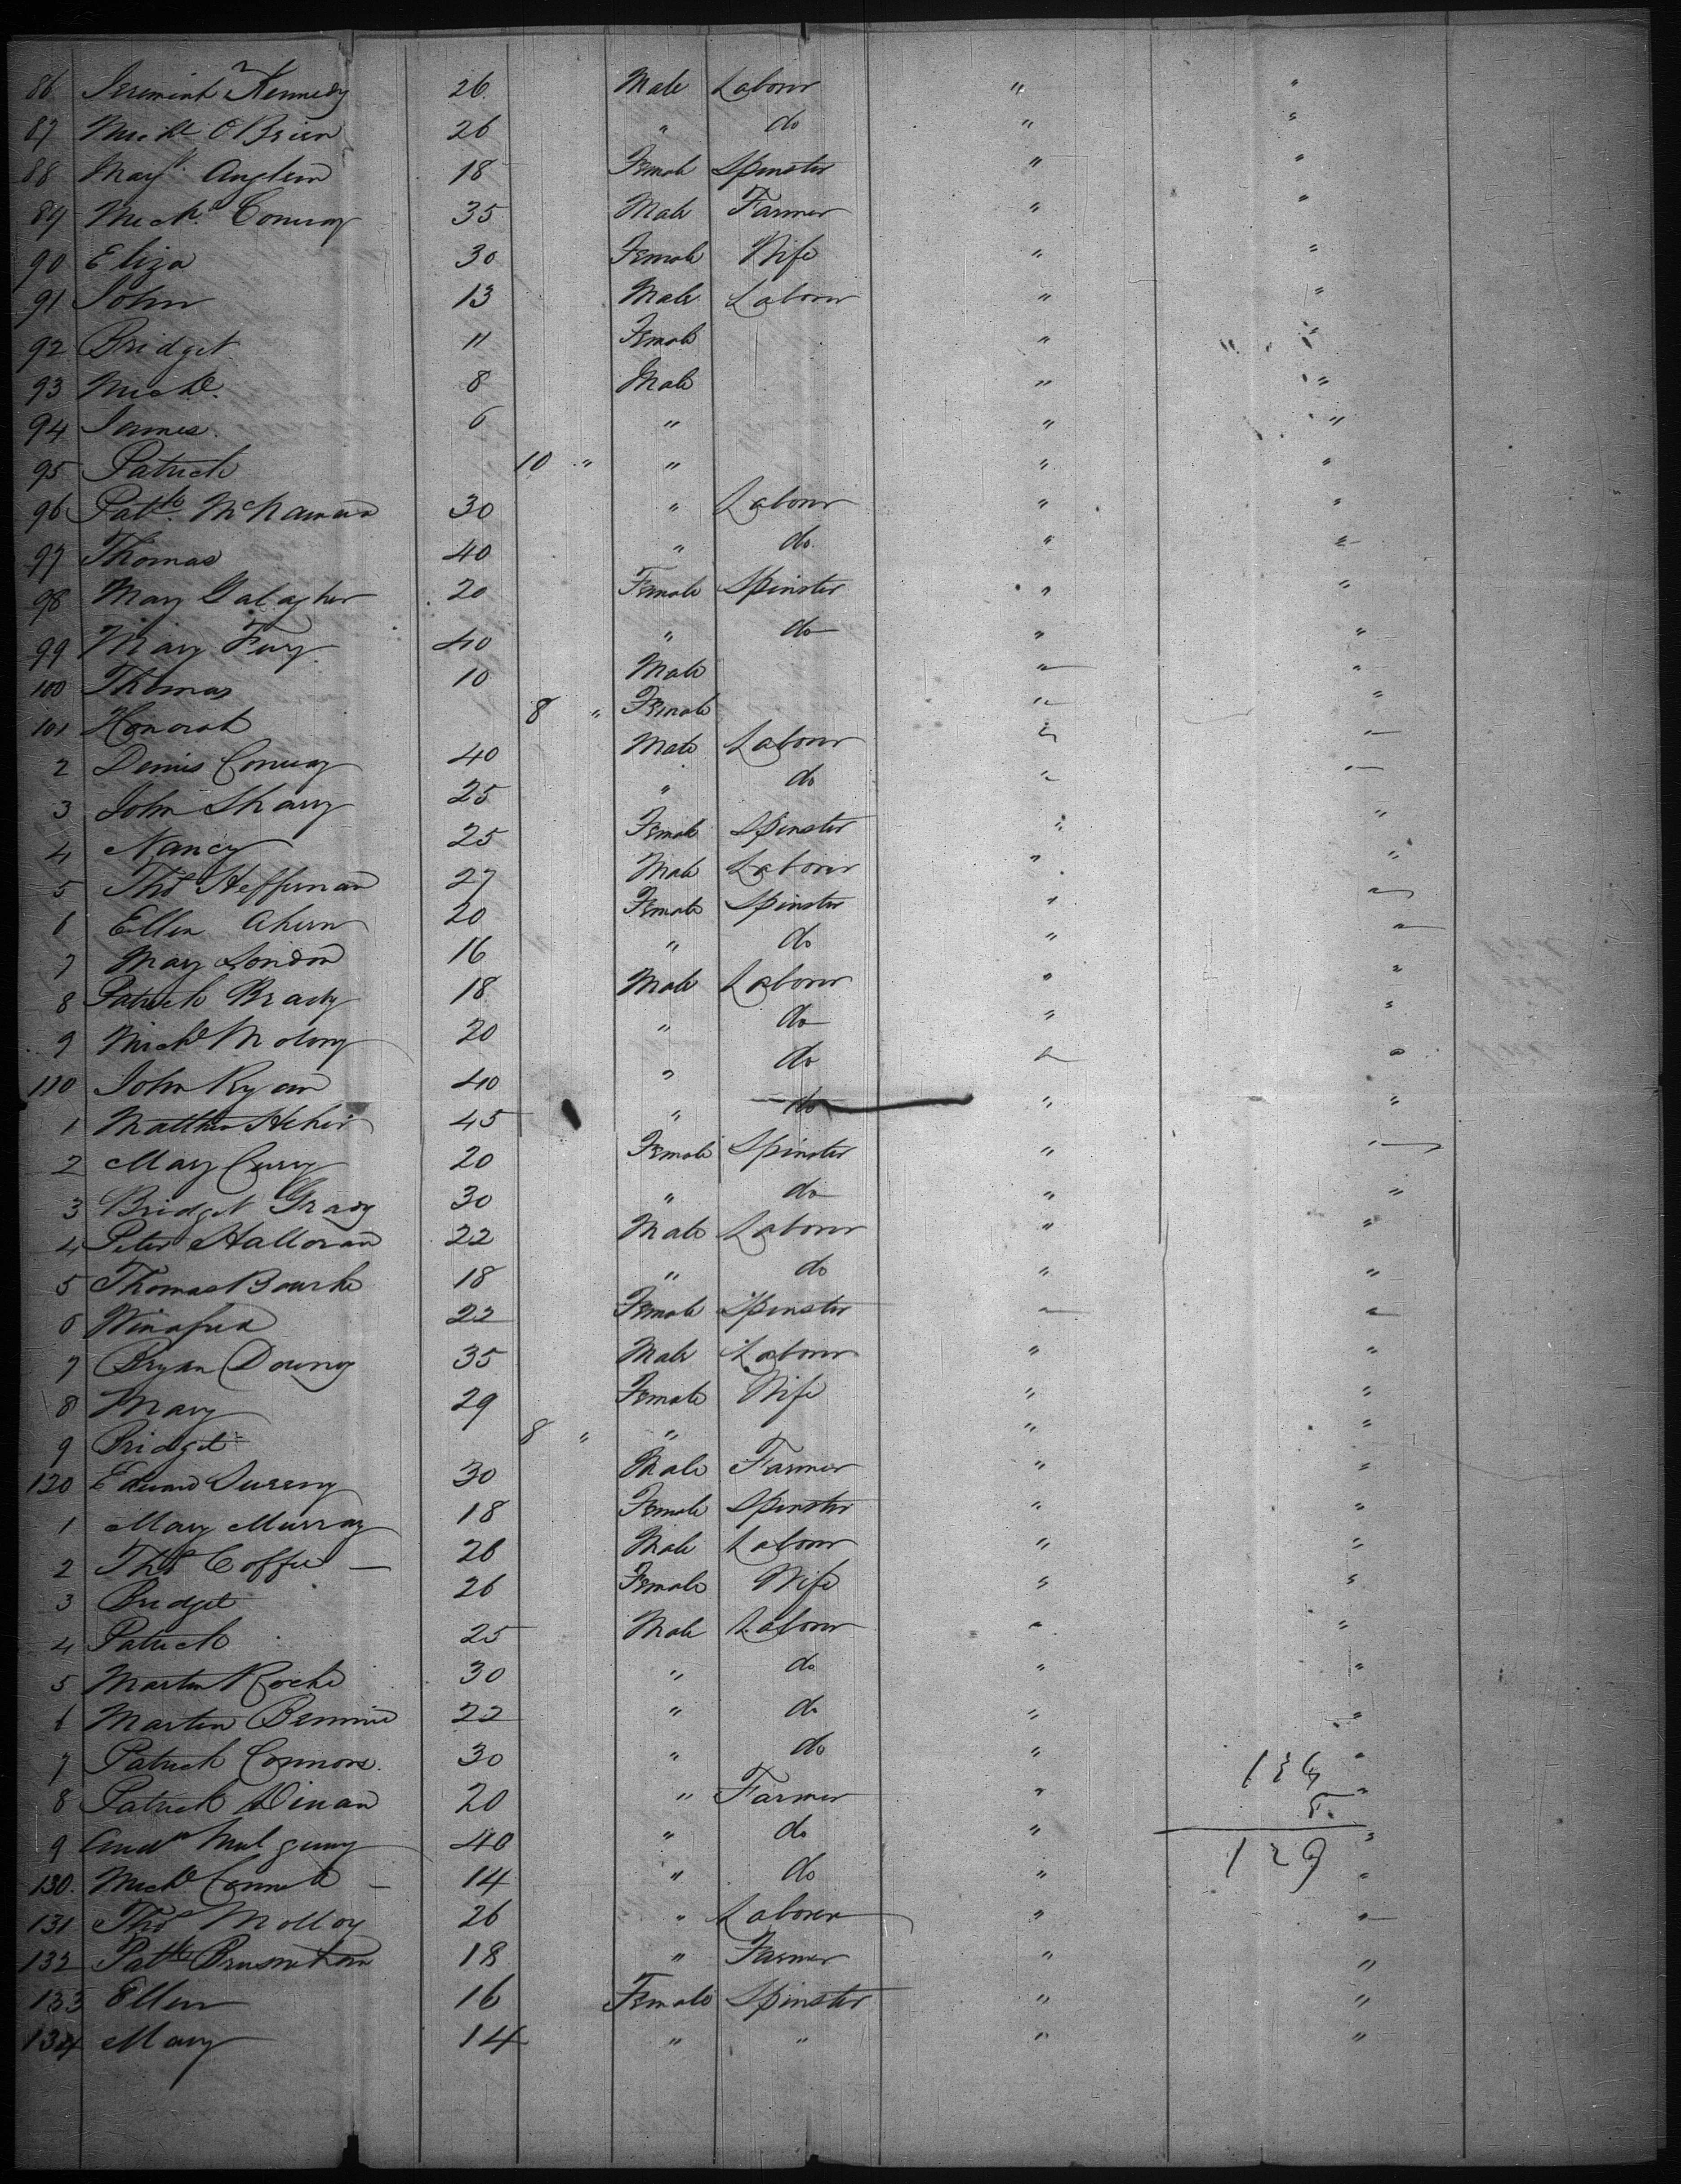 86 Jeremiah Kennedy 26 Male Laborer " "
87 Michl O Brien 26 " do " "
88 Mary Anglim 18 Female Spinster " "
89 Michl Conway 35 Male Farmer " "
90 Eliza 30 Female Wife " "
91 John 13 Male Laborer " "
92 Bridget 11 Female " "
93 Michl. 8 Male " "
94 James 6 " " "
95 Patrick 10 " " " "
96 Patk. McNamara 30 " Laborer " "
97 Thomas 40 " do " "
98 Mary Galagher 20 Female Spinster " "
99 Mary Fury 40 " do " "
100 Thomas 10 Male " "
101 Honorah 8 " Female " "
2 Denis Conway 40 Male Laborer " "
3 John 25 " do " "
4 Nancy 25 Female Spinster " "
5 Thos Heffernan 27 Male Laborer " "
6 Ellen Ahern 20 Female Spinster " "
7 Mary London 16 " do " "
8 Patrick Brady 18 Male Laborer " "
9 Michl Molony 20 " do " "
110 John Ryan 40 " do " "
1 Matthew Hehir 45 " do " "
2 Mary Curry 20 Female Spinster " "
3 Bridget Grady 30 " do " "
4 Peter Halloran 22 Male Laborer " "
5 Thomas Bourke 18 " do " "
6 Winafred 22 Female Spinster " "
7 Bryan Downey 35 Male Laborer " "
8 Mary 29 Female Wife " "
9 Bridget 8 " " " "
120 Edward 30 Male Farmer " "
1 Mary Murray 18 Female Spinster " "
2 Thos Coffee 26 Male Laborer " "
3 Bridget 26 Female Wife " "
4 Patrick 25 Male Laborer " "
5 Martin Roche 30 " do " "
6 Martin 22 " do " "
7 Patrick Connors. 30 " do " "
8 Patrick Dinan 20 " Farmer " "
134
5
9 Andw 40 " do " "
129
130. Michl 14 " do " "
131 Thos Molloy 26 " Laborer " "
132 Patk Brusnihan 18 " Farmer " "
133 Ellen 16 Female Spinster " "
134 Mary 14 " " " "